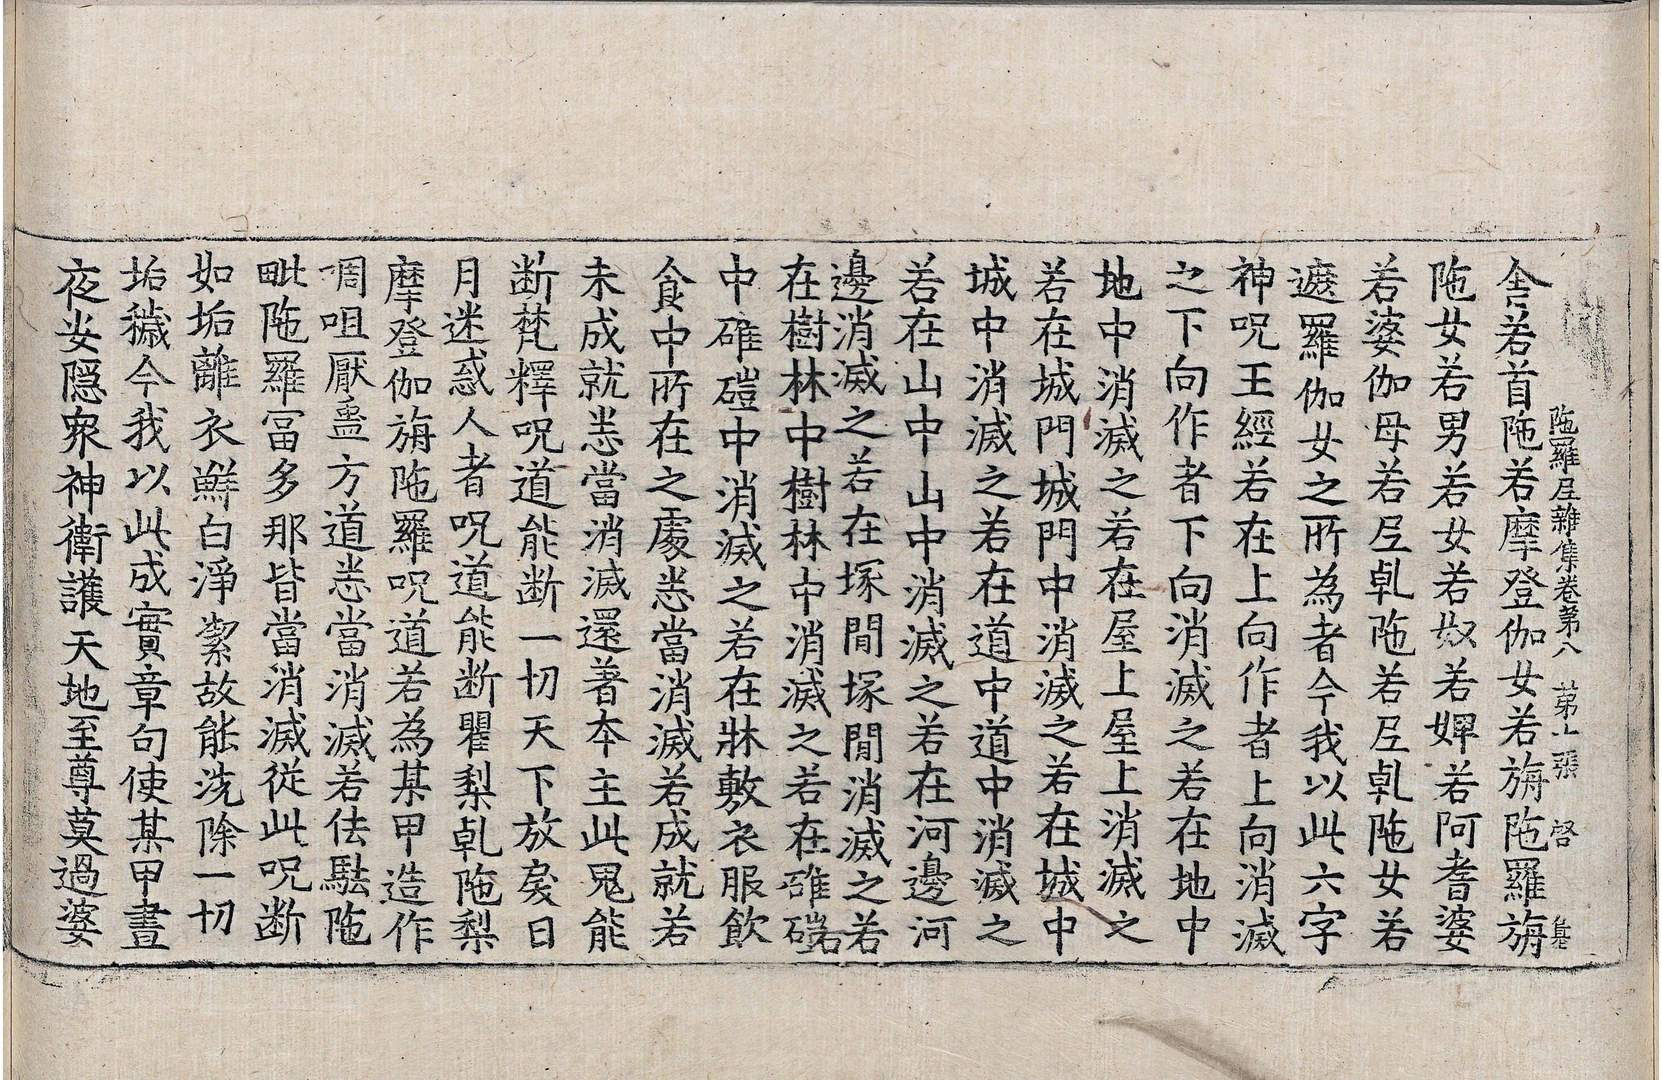 陁羅尼雜集卷第八 第十張 啓 基
舍若首陁若摩登伽女若旃陁羅旃
陁女若男若女若奴若婢若阿耆婆
若婆伽母若尼乹陁若尼乹陁女若
遮羅伽女之所為者今我以此六字
神呪王經若在上向作者上向消滅
之下向作者下向消滅之若在地中
地中消滅之若在屋上屋上消滅之
若在城門城門中消滅之若在城中
城中消滅之若在道中道中消滅之
若在山中山中消滅之若在河邊河
邊消滅之若在塚間塚間消滅之若
在樹林中樹林中消滅之若在碓磑若
中碓磑中消滅之若在牀敷衣服飲
食中所在之處悉當消滅若成就若
未成就悉當消滅還著本主此鬼能
断梵釋呪道能断一切天下放矦日
月迷惑人者呪道能断瞿梨乹陁梨
摩登伽旃陁羅呪道若為某甲造作
凋咀厭蠱方道悉當消滅若佉䭾陁
毗陁羅冨多那皆當消滅從此呪断
如垢離衣鮮白淨潔故能洗除一切
垢穢今我以此成實章句使某甲晝
夜安隠衆神衛護天地至尊莫過婆